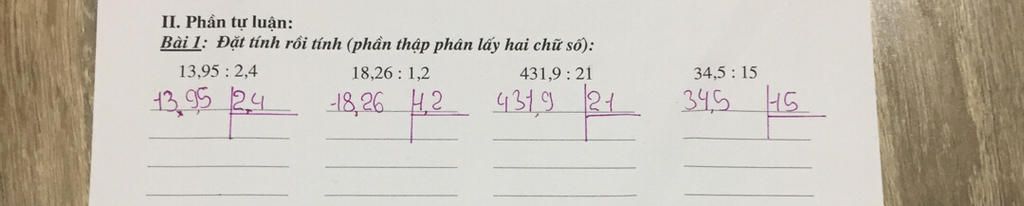 II. Phần tự luận:
Bài 1: Đặt tính rồi tính (phần thập phân lấy hai chữ số):
13,95 : 2,4 18,26 : 1,2 431,9 : 21 34,5 : 15
13,95 2,4 18,26 1,2 431,9 21 34,5 15